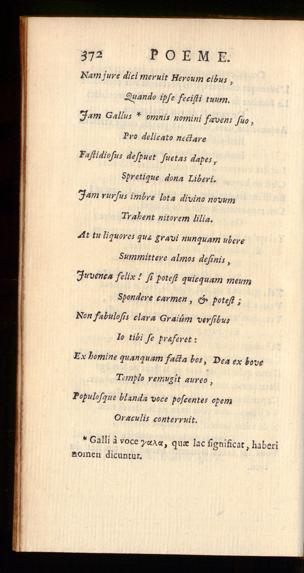 372 POEME.
Nam jure dici meruit Heroum cibus,
Quando ipse fecisti tuum.
Jam Gallus * omnis nomini favens suo,
Pro delicato nectare
Fastidiosus despuet suetas dapes,
Spretique dona Liberi.
Jam rursus imbre lota divino novum
Trahent nitorem lilia.
At tu liquores quæ gravi nunquam ubere
Summittere almos desinis,
Juvenca felix! si potest quicquam meum
Spondere carmen, & potest;
Non fabulosis clara Graiûm versibus
Io tibi se præferet:
Ex homine quanquam facta bos, Dea ex bove
Templo remugit aureo,
Populosque blanda voce poscentes opem
Oraculis conterruit.
* Galli à voce γαλα, quæ lac significat, haberi
nomen dicuntur.